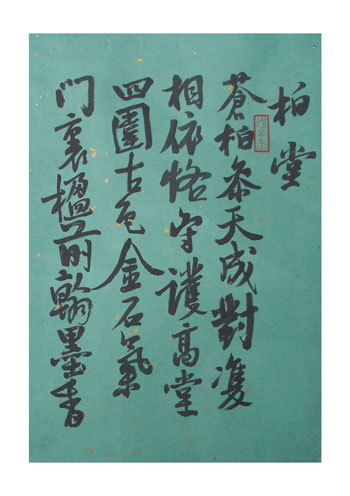 柏堂
蒼柏参天成對雙
相依恪守護高堂
四圍古色金石氣
门裏楹前翰墨香